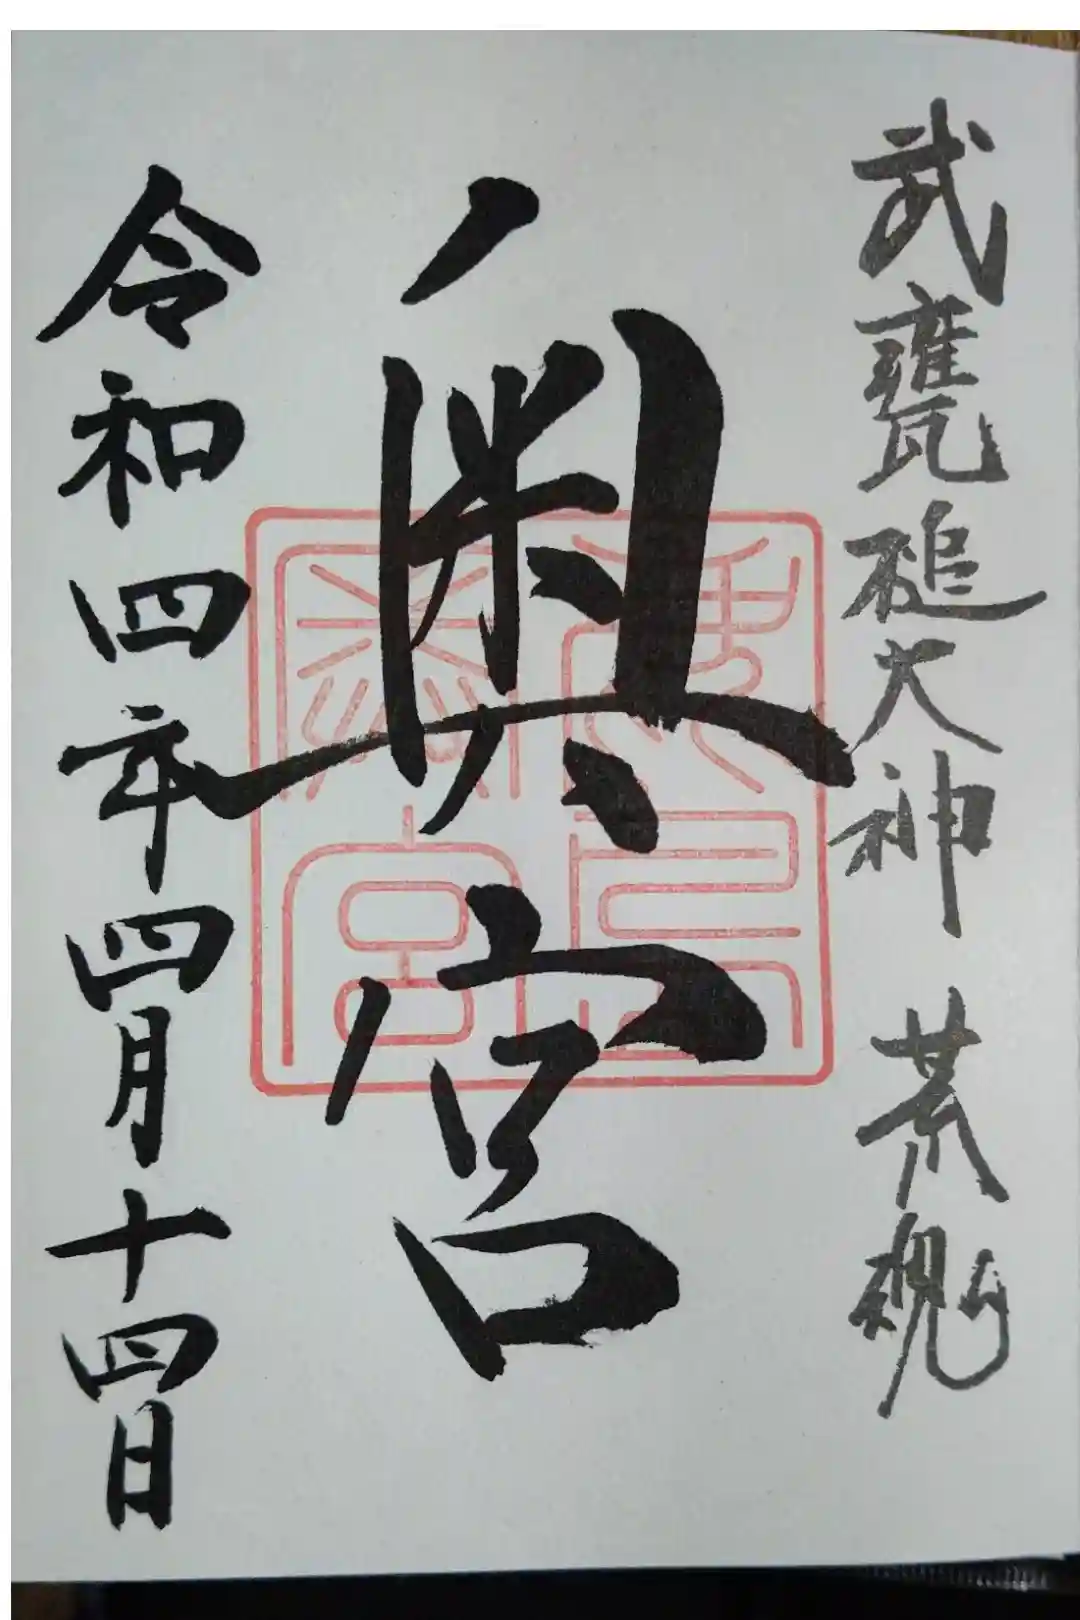 武甕槌大神 荒魂
奥宮
鹿島奥宮
令和四年四月十四日